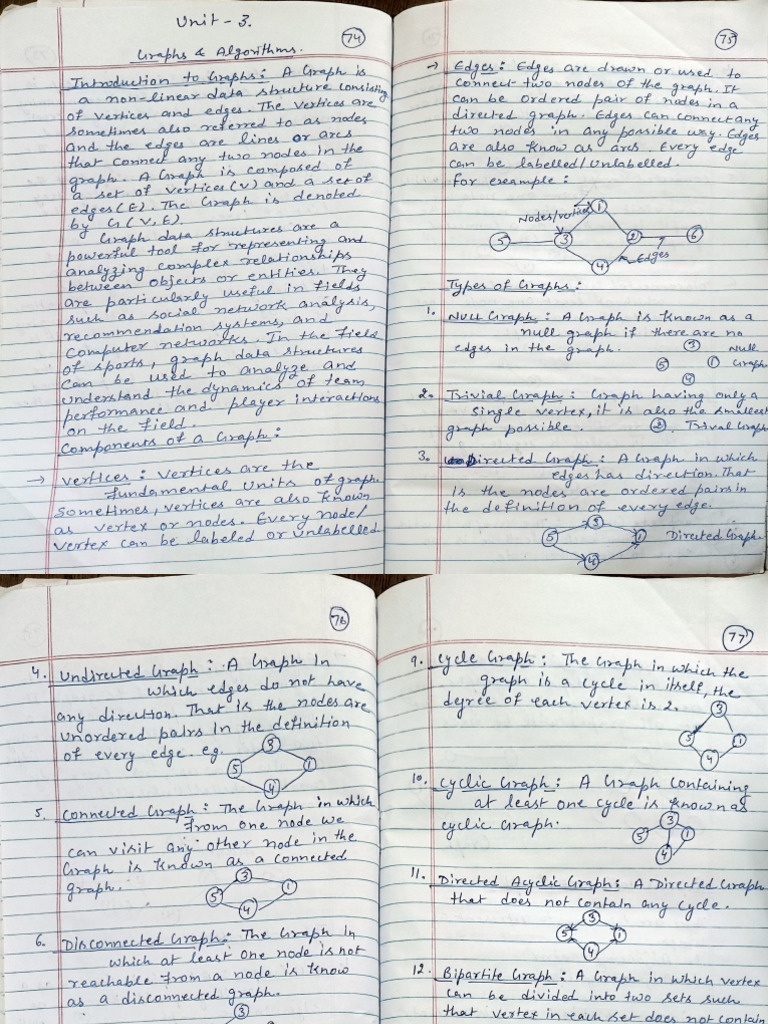 Unit - 3.
74
Graphs & Algorithms.
Introduction to Graphs : A Graph is
a non-linear data structure consisting
of vertices and edges. The vertices are
sometimes also referred to as nodes
and the edges are lines or arcs
that connect any two nodes in the
graph. A Graph is composed of
a set of vertices (V) and a set of
edges (E). The Graph is denoted
by G(V, E).
Graph data structures are a
powerful tool for representing and
analyzing complex relationships
between objects or entities. They
are particularly useful in fields
such as social network analysis,
recommendation systems, and
computer networks. In the field
of sports, graph data structures
can be used to analyze and
understand the dynamics of team
performance and player interactions
on the field.
Components of a Graph :
→ Vertices : Vertices are the
fundamental units of graph.
Sometimes, vertices are also known
as vertex or nodes. Every node/
vertex can be labeled or unlabelled.
75
→ Edges : Edges are drawn or used to
connect two nodes of the graph. It
can be ordered pair of nodes in a
directed graph. Edges can connect any
two nodes in any possible way. Edges
are also know as arcs. Every edge
can be labelled/unlabelled.
for example :
Nodes/vertices
1
5 3 2 6
4
Edges
Types of Graphs :
1. Null Graph : A Graph is known as a
null graph if there are no
edges in the graph. 3 Null
5 1 Graph
4
2. Trivial Graph : Graph having only a
single vertex, it is also the smallest
graph possible. 2 Trival Graph
3. Directed Graph : A Graph in which
edges has direction. That
is the nodes are ordered pairs in
the definition of every edge.
3
5 1 Directed Graph.
4
76
4. Undirected Graph : A Graph in
which edges do not have
any direction. That is the nodes are
unordered pairs in the definition
of every edge. eg. 3
5 1
4
5. Connected Graph : The Graph in which
from one node we
can visit any other node in the
Graph is known as a connected
graph. 3
5 1
4
6. Disconnected Graph : The Graph in
which at least one node is not
reachable from a node is know
as a disconnected graph.
3
77
9. Cycle Graph : The Graph in which the
graph is a cycle in itself, the
degree of each vertex is 2.
3
5 1
4
10. Cyclic Graph : A Graph containing
at least one cycle is known as
cyclic Graph. 3
5 1
4
11. Directed Acyclic Graph : A Directed Graph
that does not contain any cycle.
3
5 1
4
12. Bipartite Graph : A Graph in which vertex
can be divided into two sets such
that vertex in each set does not contain